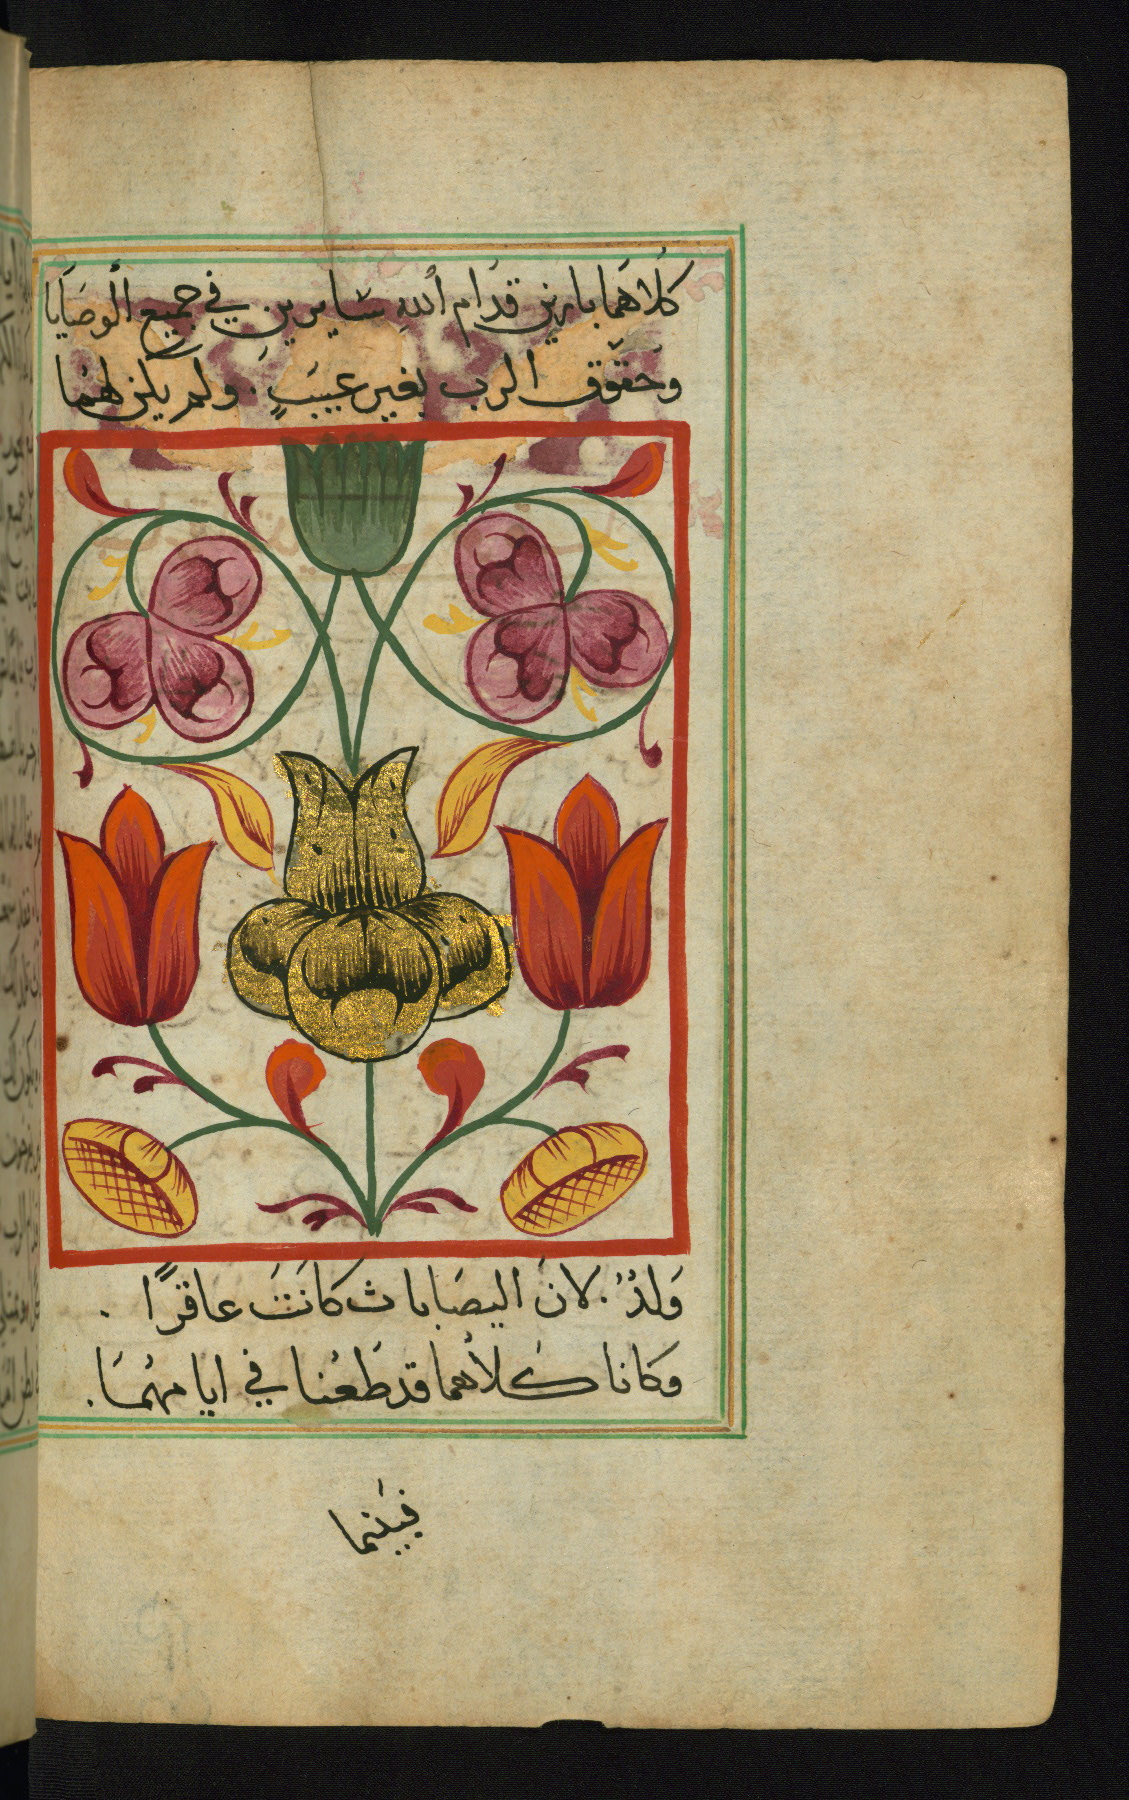 كلاهما بارين قدام الله سايرين في جميع الوصايا
وحقوق الرب بغير عيب . ولم يكن لهما
ولد . لان اليصابات كانت عاقرًا .
وكانا كلاهما قد طعنا في ايامهما .
فبينما